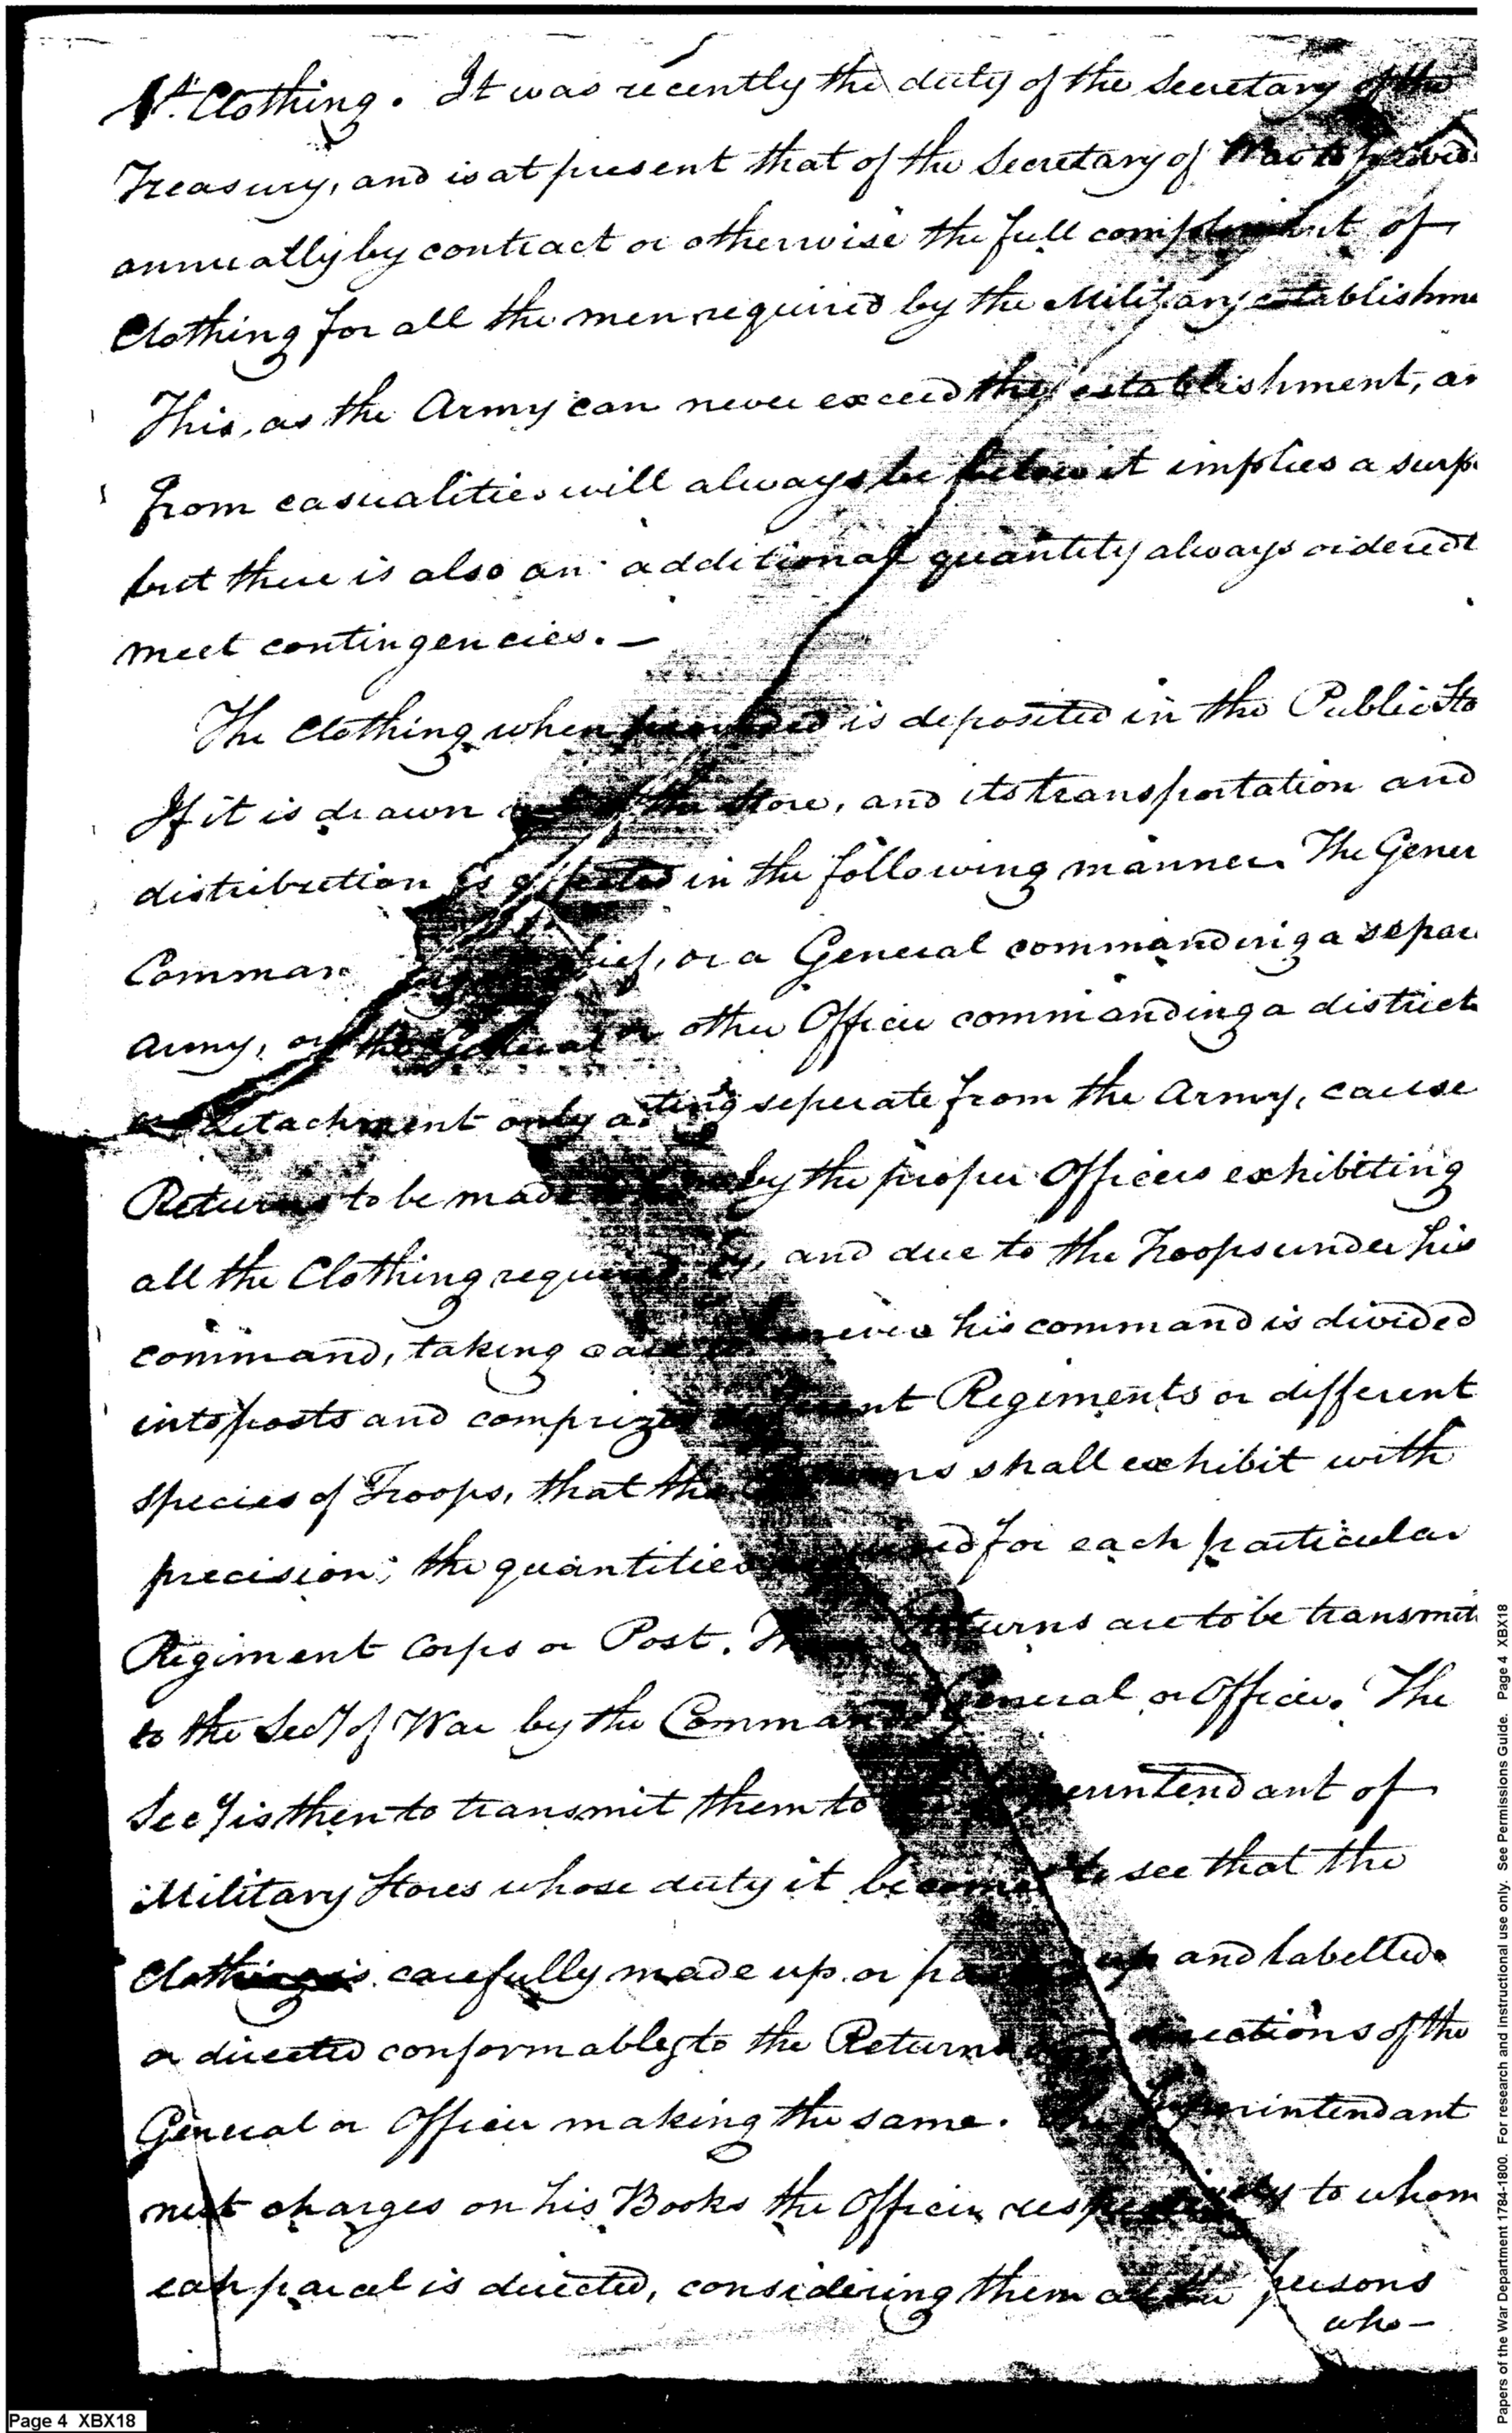 1st. Clothing. It was recently the duty of the Secretary of the
Treasury, and is at present that of the Secretary of War to provide
annually by contract or otherwise the full compliment of
Clothing for all the men required by the Military establishme
This, as the Army can never exceed the establishment, an
from casualities will always be below it implies a surp
but there is also an additional quantity always ordered t
meet contingencies. —
The Clothing when provided is deposited in the Public Sto
If it is drawn the Store, and its transportation and
distribution is effected in the following manner. The Gener
Comman ief, or a General commanding a separ
Army, or the General or other Officer commanding a district
or detachment only acting seperate from the Army, cause
Returns to be made by the proper Officers exhibiting
all the Clothing required by, and due to the Troops under his
command, taking care his command is divided
into posts and comprizes Regiments or different
species of Troops, that the shall exhibit with
precision; the quantities for each particular
Regiment Corps or Post. Returns are to be transmit
to the Secy of War by the Command General or Officer. The
Secy is then to transmit them to erintendant of
Military Stores whose duty it becomes to see that the
Clothing is carefully made up or pa up and labelled
or directed conformably to the Returns directions of the
General or Officer making the same. The Superintendant
next charges on his Books the Officers respectively to whom
each parcel is directed, considering them as the persons
who —
Page 4 XBX18
Papers of the War Department 1784-1800. For research and instructional use only. See Permissions Guide. Page 4 XBX18